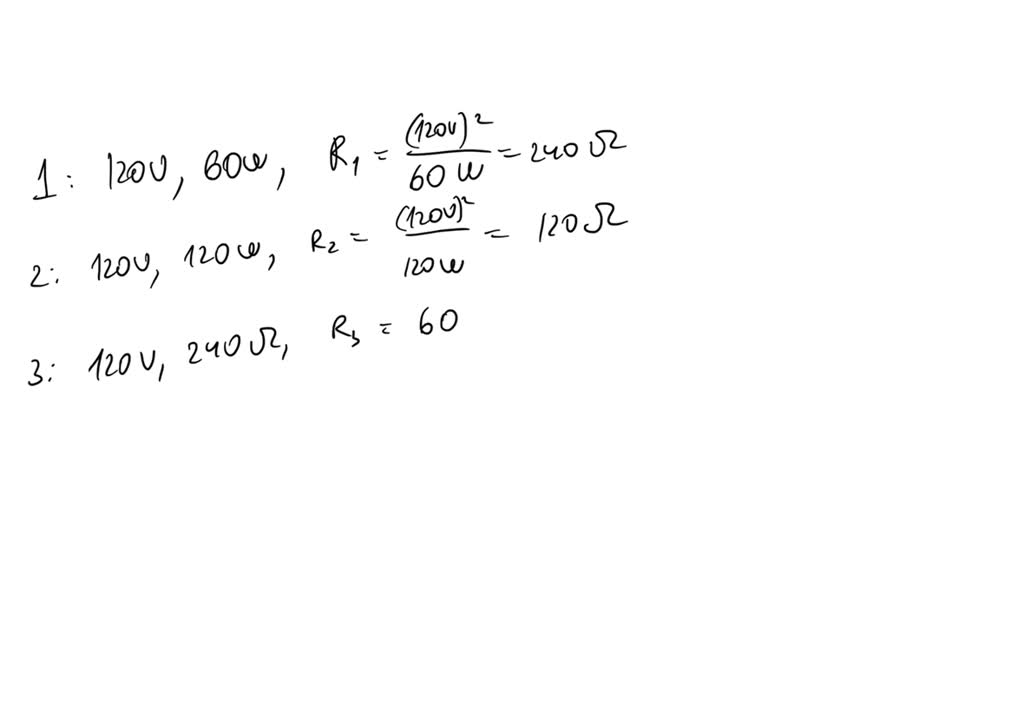 1: 120V, 60W, R₁ = (120V)² / 60 W = 240 Ω
2: 120V, 120W, R₂ = (120V)² / 120W = 120 Ω
3: 120V, 240 Ω, R₃ = 60